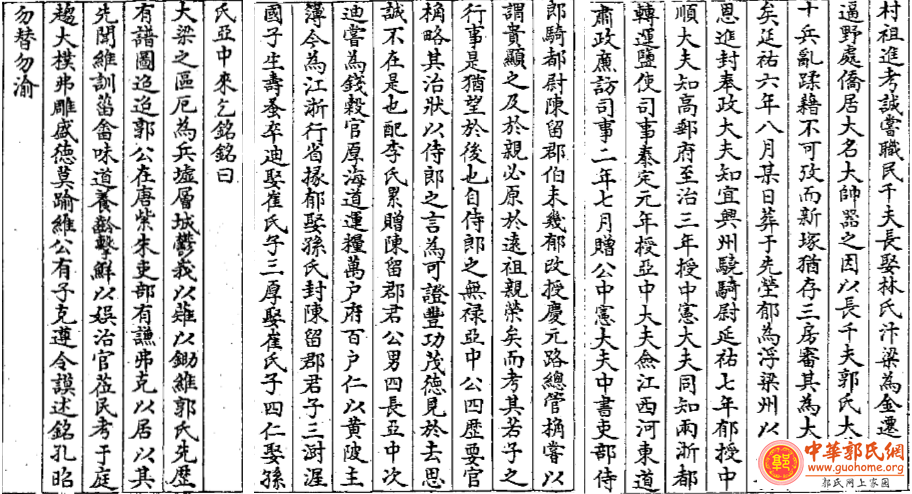 村祖進考誠嘗職民千夫長娶林氏汴梁為金遷
逼野處僑居大名大帥器之因以長千夫郭氏大
十兵亂蹂藉不可攷而新塚猶存三房審其為大
矣延祐六年八月某日葬于先塋郁為浮梁州以
恩進封奉政大夫知宜興州驍騎尉延祐七年郁授中
順大夫知高郵府至治三年授中憲大夫同知兩浙都
轉運鹽使司事泰定元年授亞中大夫僉江西河東道
肅政廉訪司事二年七月贈公中憲大夫中書吏部侍
郎騎都尉陳留郡伯未幾郁改授慶元路總管桷嘗以
謂貴顯之及於親必原於遠祖親榮矣而考其若子之
行事是猶望於後也自侍郎之無祿亞中公四歷要官
桷略其治狀以侍郎之言為可證豐功茂德見於去思
誠不在是也配李氏累贈陳留郡君公男四長亞中次
迪嘗為錢穀官厚海道運糧萬户府百户仁以黄陂主
簿今為江浙行省掾郁娶孫氏封陳留郡君子三澍渥
國子生壽蚤卒迪娶崔氏子三厚娶崔氏子四仁娶孫
氏亞中來乞銘銘曰
大梁之區厄為兵墟層城鬱我以薙以鋤維郭氏先歷
有譜圖迢迢郭公在唐紫朱吏部有謙弗克以居以其
先開維訓菑畬味道養齡擊鮮以娯治官莅民考于庭
趨大樸弗雕盛德莫踰維公有子克遵令謨述銘孔昭
勿替勿渝
中華郭氏網
www.guohome.org
郭氏网上家园